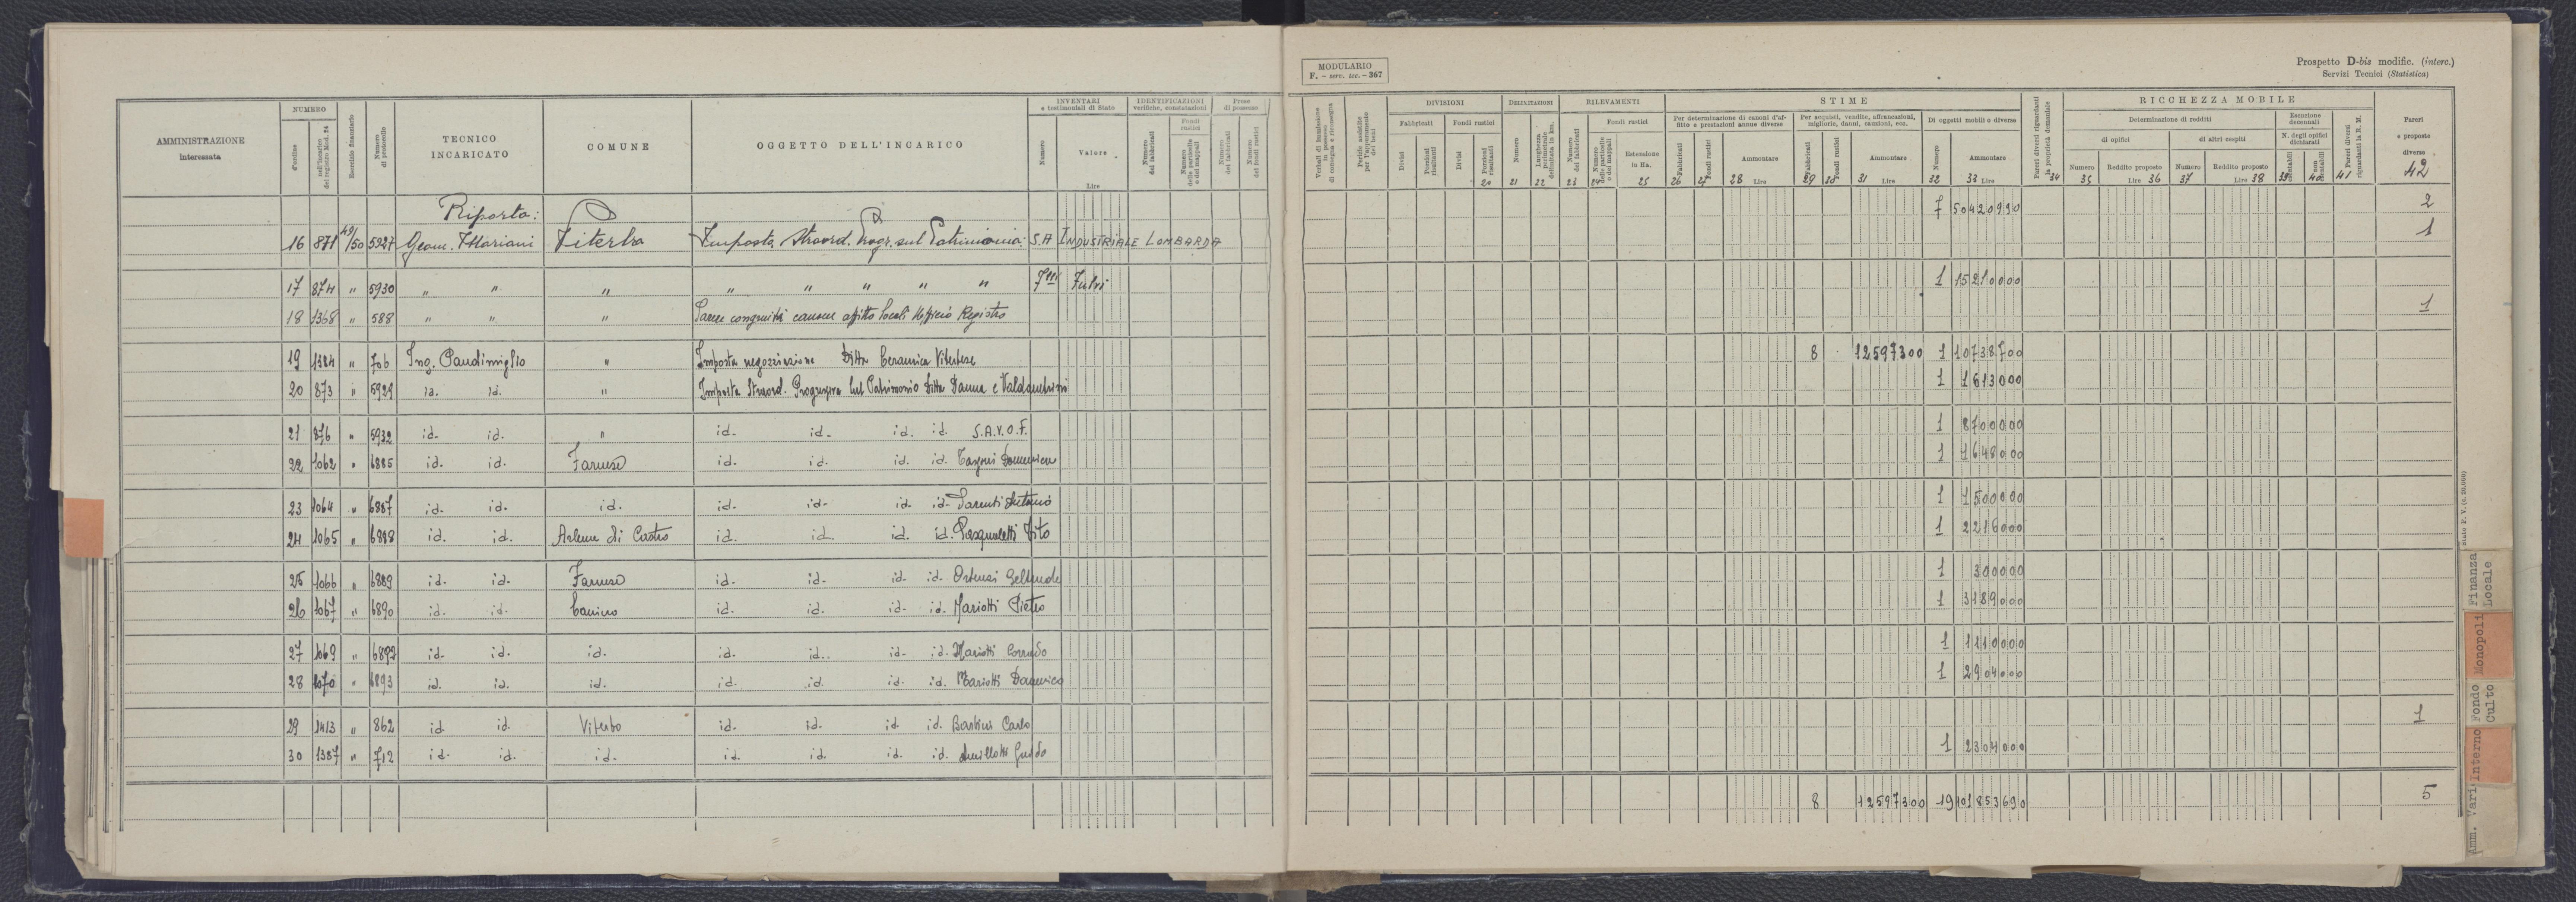 MODULARIO
F. - serv. tec. - 367
Prospetto D-bis modific. (interc.)
Servizi Tecnici (Statistica)
AMMINISTRAZIONE
interessata
NUMERO
d'ordine
dell'incarico del registro Mod. 24
Esercizio finanziario
Numero di protocollo
TECNICO
INCARICATO
COMUNE
OGGETTO DELL'INCARICO
INVENTARI
e testimoniali di Stato
Numero
Valore
Lire
IDENTIFICAZIONI
verifiche, constatazioni
Numero dei fabbricati
Fondi rustici
Numero delle particelle o dei mappali
Prese
di possesso
Numero dei fabbricati
Numero dei fondi rustici
Verbali di immissione in possesso di consegna e riconsegna
Perizie suddette per l'accertamento dei beni
DIVISIONI
Fabbricati
Fondi rustici
Divisi
Porzioni risultanti
Divisi
Porzioni risultanti
DELIMITAZIONI
Numero
Lunghezza perimetrale delimitata in km.
RILEVAMENTI
Numero dei fabbricati
Fondi rustici
Numero delle particelle o dei mappali
Estensione in Ha.
STIME
Per determinazione di canoni d'affitto e prestazioni annue diverse
Fabbricati
Fondi rustici
Ammontare
Lire
Per acquisti, vendite, affrancazioni, migliorie, danni, cauzioni, ecc.
Fabbricati
Fondi rustici
Ammontare
Lire
Di oggetti mobili o diverse
Numero
Ammontare
Lire
Pareri diversi riguardanti la proprietà demaniale
RICCHEZZA MOBILE
Determinazione di redditi
di opifici
di altri cespiti
Numero
Reddito proposto
Lire
Numero
Reddito proposto
Lire
Esenzione decennali
N. degli opifici dichiarati
Pareri diversi riguardanti la R. M.
Pareri
e proposte
diverse
20 21 22 23 24 25 26 27 28 29 30 31 32 33 34 35 36 37 38 39 40 41 42
Riporto: 7 50420990 2
16 871 49/50 5927 Geom. Mariani Viterbo Imposta Straord. Progr. sul Patrimonio: S.A INDUSTRIALE LOMBARDA 1
17 874 " 5930 " " " " " " " " F.lli Fulvi 1 15210000
18 1368 " 588 " " " Parere congruità canone affitto locali Ufficio Registro 1
19 1384 " 706 Ing. Pandimiglio " Imposta negoziazione Ditta Ceramica Viterbese 8 12597300 1 10738700
20 873 " 5929 id. id. " Imposta Straord. Progressiva sul Patrimonio Ditta 1 1613000
21 876 " 5932 id. id. " id. id. id. id. S.A.V.O.F. 1 8700000
22 1062 " 6885 id. id. Farnese id. id. id. id. Domenico 1 1648000
23 1064 " 6887 id. id. id. id. id. id. id. Parenti Antonio 1 1500000
24 1065 " 6888 id. id. Arlena di Castro id. id. id. id. Pasqualetti Vito 1 2216000
25 1066 " 6889 id. id. Farnese id. id. id. id. Ortensi Geltrude 1 300000
26 1067 " 6890 id. id. Canino id. id. id. id. Mariotti Pietro 1 3189000
27 1069 " 6892 id. id. id. id. id. id. id. Mariotti Corrado 1 1110000
28 1070 " 6893 id. id. id. id. id. id. id. Mariotti Domenico 1 2904000
29 1413 " 862 id id. Viterbo id. id. id id. Carlo 1
30 1387 " 712 id. id. id. id. id. id. id. Guido 1 2304000
8 12597300 19 101853690 5
Finanza Locale
Monopoli
Fondo Culto
Interno
Amm. Varie